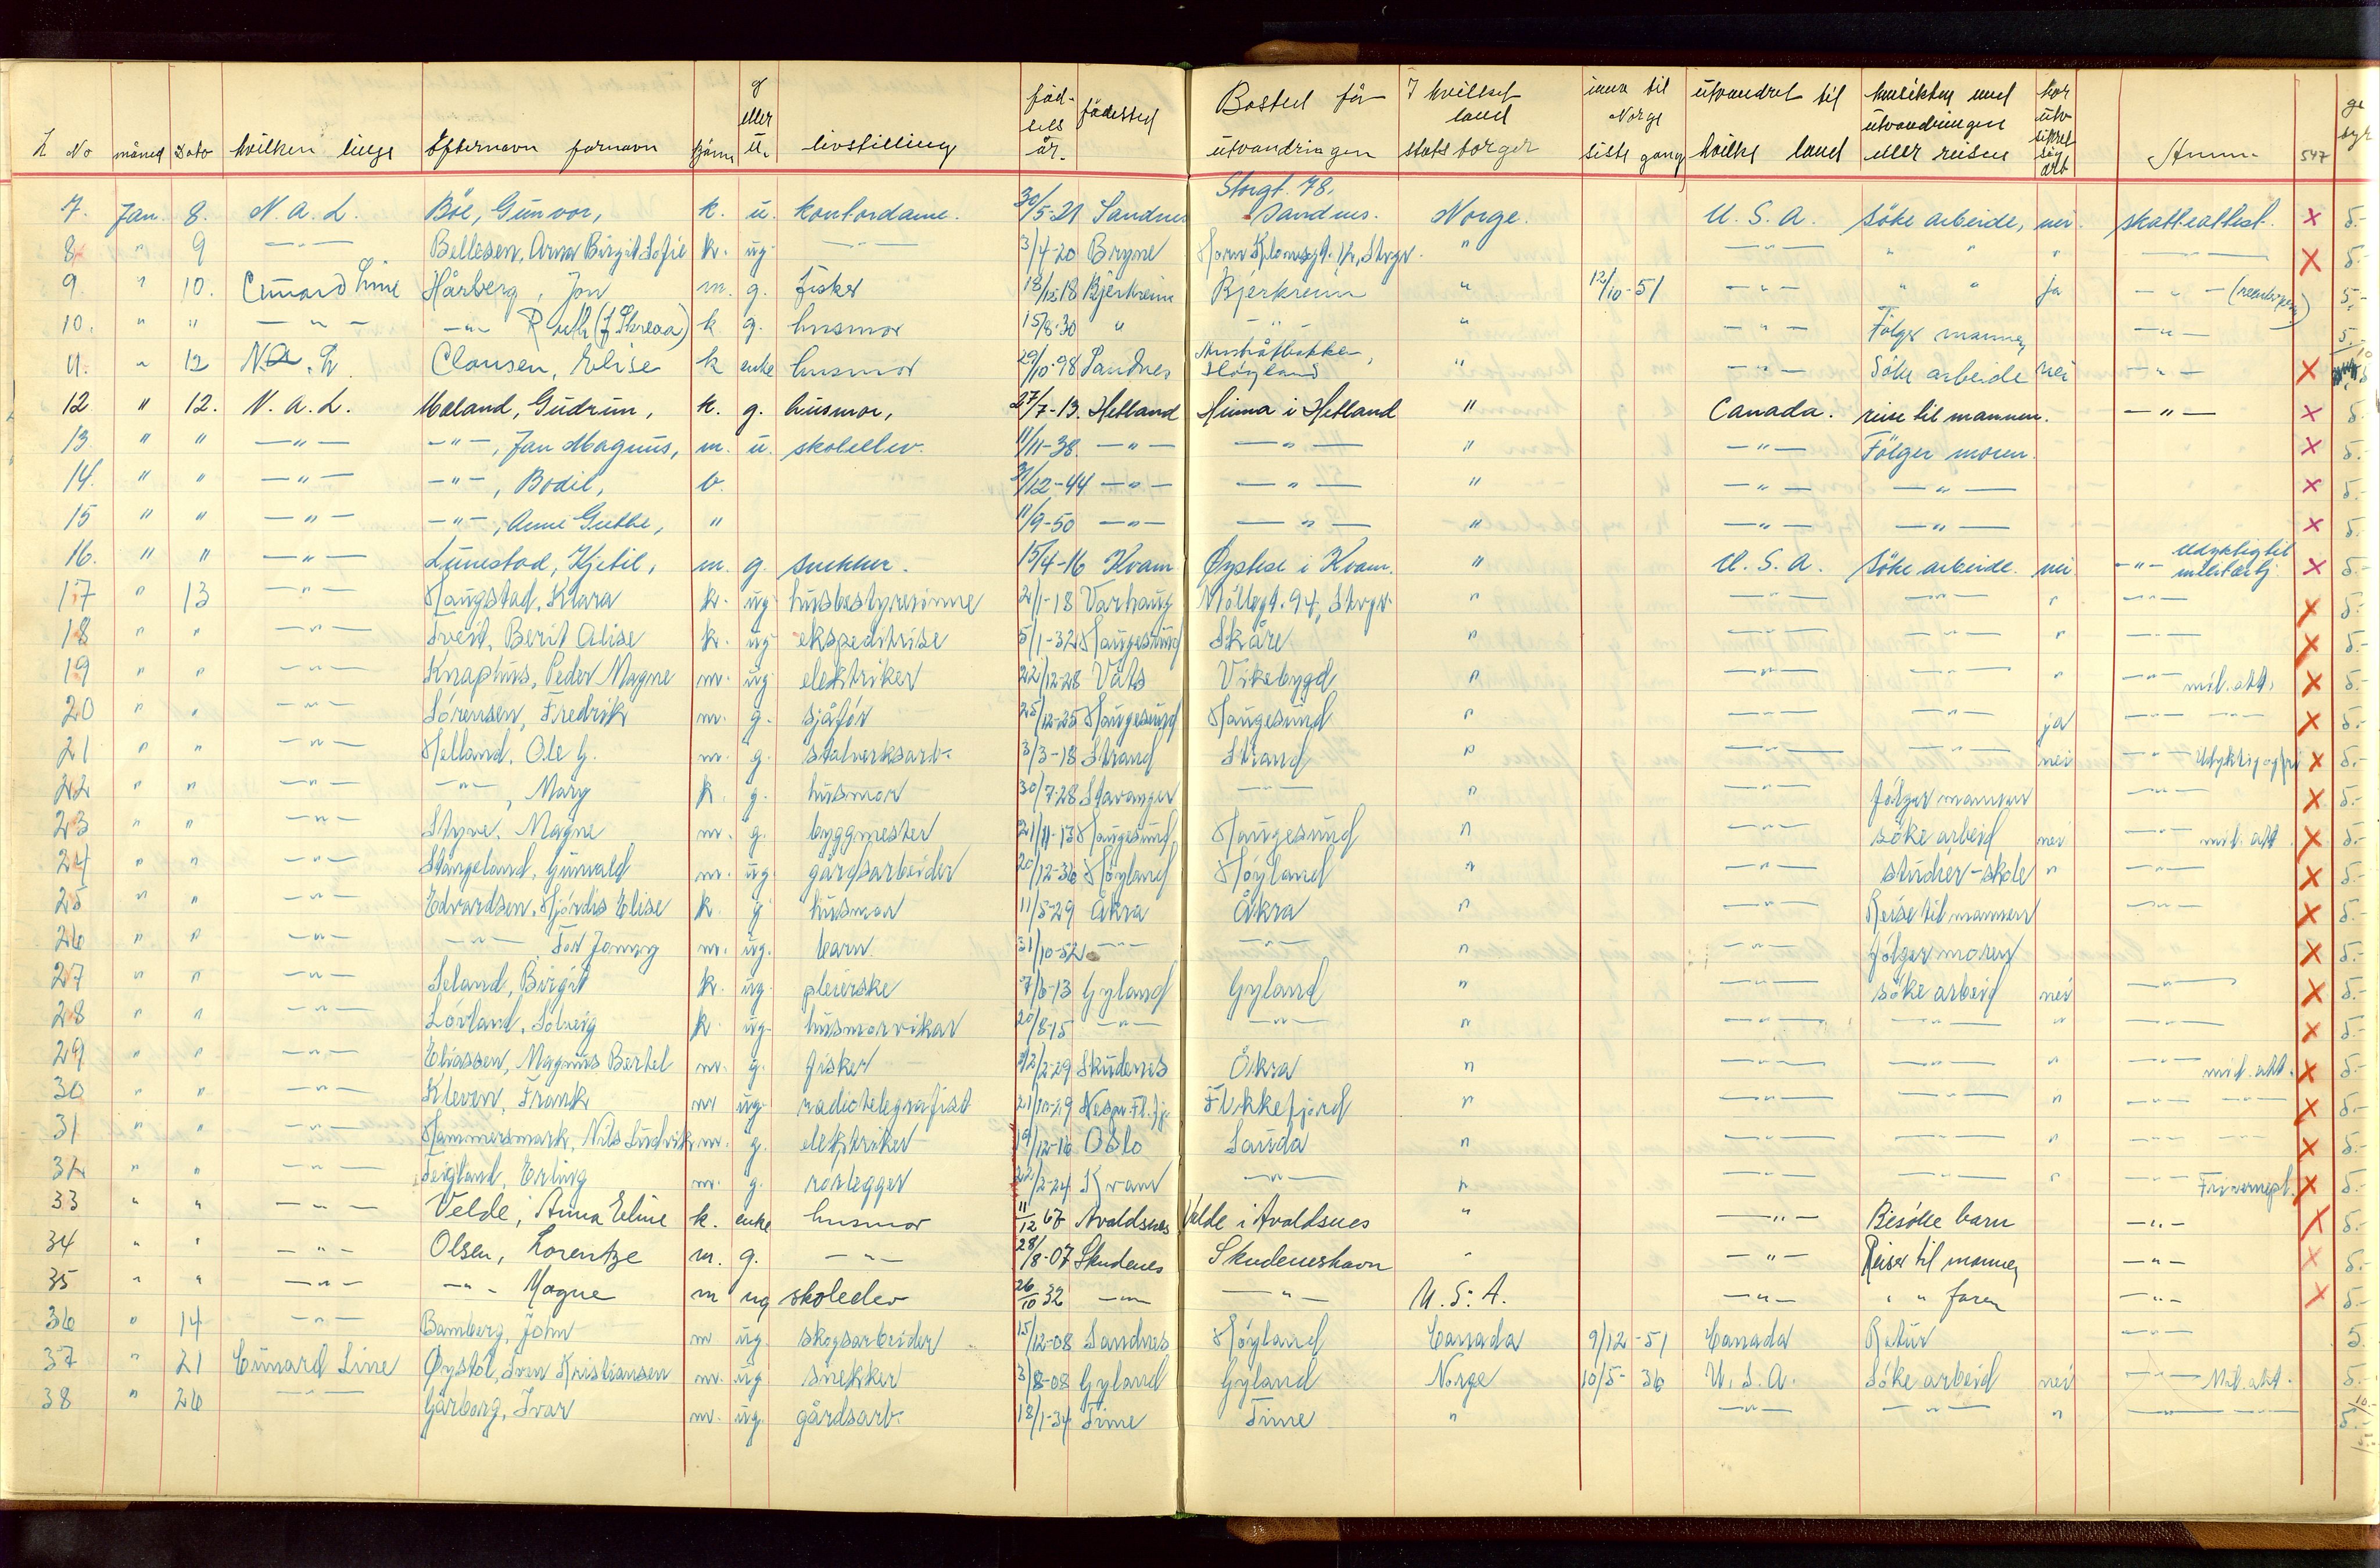 L No måned Dato hvilken linje Efternavn fornavn kjønn g eller u. livstilling fød- sels år. fødested Bosted før utvandringen I hvilket land statsborger innv til Norge siste gang utvandret til hvilke land hensikten med utvandringen eller reisen har utv sikret sig arb Anm. 547
7. Jan. 8. N. A. L. Böe, Gunvor, k. u. kontordame. 30/5-21 Sandnes Storgt. 78. Sandnes. Norge. U. S. A. söke arbeide, nei. skatteattest. × 5.-
8 " 9 -"- Bellesen, Anna Birgit Sofie k. ug -"- 3/4-20 Bryne Stvgr. " -"- " " " -"- × 5.-
9 " 10. Cunard Line Hårberg, Jon m. g. fisker 18/12-18 Bjerkreim Bjerkreim " 12/10-51 -"- " " ja -"- 5.-
10. " " -"- -"- Ruth (f. Skreaa) k g. husmor 15/8-30 " -"- " -"- Fölger mannen -"- 5.-
11. " 12 N.A.L. Clausen, Elise k enke husmor 29/10-98 Sandnes Höyland " -"- Söke arbeide nei -"- ×
12 " 12. N. A. L. Mæland, Gudrun, k. g. husmor, 27/7-13. Hetland Hinna i Hetland " Canada. reise til mannen. -"- × 5.-
13. " " -"- -"-, Jan Magnus, m. u. skoleelev. 11/11-38. -"- -"- " -"- Fölger moren. × 5.-
14. " " -"- -"-, Bodil, b. /12-44 -"- -"- " -"- -"- × 5.-
15 " " -"- -"-, Anne Grethe, " 11/9-50 -"- -"- " -"- -"- × 5.-
16. " " -"- Lunestad, Kjetil, m. g. snekker. 15/4-16 Kvam Øystese i Kvam. " U. S. A. söke arbeide. nei -"- Udyktig til militærtj. × 5.-
17 " 13 -"- Haugstad, Klara k. ug husbestyrerinne 2/1-18 Varhaug Möllegt. 94, Stvgr. " -"- -"- " -"- × 5.-
18 " " -"- Tveit, Berit Alise k. ug ekspeditrise 5/1-32 Haugesund Skåre " -"- -"- " -"- × 5.-
19 " " -"- Knaphus, Peder Magne m. ug elektriker 22/12-28 Vats Vikebygd " -"- -"- " -"- mil. att. × 5.-
20 " " -"- Sörensen, Fredrik m. g. sjåför 25/12-25 Haugesund Haugesund " -"- -"- ja -"- -"- × 5.-
21 " " -"- Helland, Ole G. m. g. stalverksarb. 3/3-18 Strand Strand " -"- -"- nei -"- × 5.-
22 " " -"- -"-, Mary k. g. husmor 30/7-28 Stavanger -"- " -"- fölger mannen -"- × 5.-
23 " " -"- Styve, Magne m. g. byggmester 21/11-13 Haugesund Haugesund " -"- söke arbeid nei -"- mil. att × 5.-
24 " " -"- Stangeland, Gunvald m. ug gårdsarbeider 20/12-36 Höyland Höyland " -"- studier-skole " -"- × 5.-
25 " " -"- Edvardsen, Hjördis Elise k. g husmor 11/5-29 Åkra Åkra " -"- Reise til mannen -"- × 5.-
26 " " -"- -"-, Tor Jonny m. ug. barn 31/10-52 -"- -"- " -"- fölger moren × 5.-
27 " " -"- Seland, Birgit k. ug. pleierske 7/6-13 Gyland Gyland " -"- söke arbeid nei -"- × 5.-
28 " " -"- Lövland, Solveig k. ug. husmorvikar 20/8-15 -"- -"- " -"- -"- " -"- × 5.-
29 " " -"- Eliassen, Magnus Bertel m. g. fisker /2-29 Skudenes Åkra " -"- -"- " -"- mil. att. × 5.-
30 " " -"- Kleven, Frank m ug. radiotelegrafist 21/10-29 Flekkefjord " -"- -"- " -"- -"- × 5.-
31 " " -"- Hammersmark, Nils Ludvik m. g. elektriker 19/12-16 Oslo Sauda " -"- -"- " -"- -"- × 5.-
32 " " -"- Teigland, Erling m. g. rorlegger 22/2-24 Kvam -"- " -"- -"- " -"- × 5.-
33 " " -"- Velde, Anna Eline k. enke husmor 11/12 67 Avaldsnes Velde i Avaldsnes " -"- Besöke barn -"- × 5.-
34 " " -"- Olsen, Lorentze m. g. -"- 28/8-07 Skudenes Skudeneshavn " -"- Reiser til mannen -"- × 5.-
35 " " -"- -"- Magne m ug skoleelev 26/10 32 -"- -"- U. S. A. -"- " " faren -"- × 5.-
36 " 14 -"- Bamberg, John m ug. skogsarbeider 15/12-08 Sandnes Höyland Canada 9/12-51 Canada Retur -"- 5.
37 " 21 Cunard Line Øystöl, Sven Kristiansen m. ug snekker 3/8-08 Gyland Gyland Norge 10/5-36 U. S. A. Söke arbeid nei -"- Mil. att. 5.-
38 " 26 -"- Gårborg, Ivar m. ug. gårdsarb. 18/1-34 Time Time " -"- -"- " -"- -"- 5.-